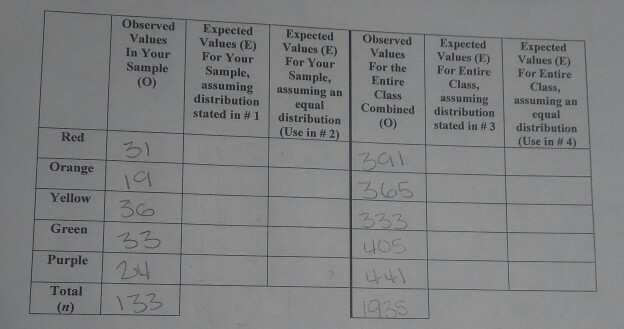 Observed Values In Your Sample (O)
Expected Values (E) For Your Sample, assuming distribution stated in # 1
Expected Values (E) For Your Sample, assuming an equal distribution (Use in # 2)
Observed Values For the Entire Class Combined (O)
Expected Values (E) For Entire Class, assuming distribution stated in # 3
Expected Values (E) For Entire Class, assuming an equal distribution (Use in # 4)
Red 31 391
Orange 19 365
Yellow 36 333
Green 33 405
Purple 24 441
Total (n) 133 1935